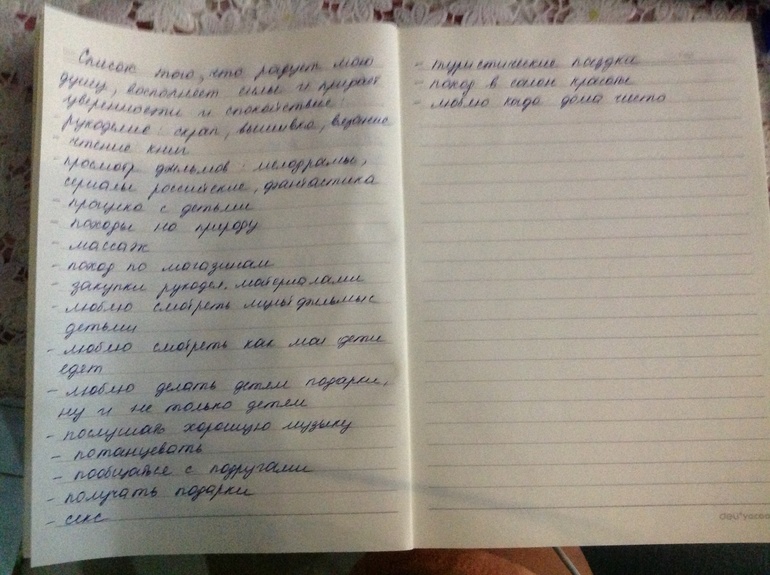 Список того, что радует мою
душу, восполняет силы и придает
уверенности и спокойствие:
рукоделие: скрап, вышивка, вязание
- чтение книг
- просмотр фильмов: мелодрамы,
сериалы российские, фантастика
- прогулка с детьми
- походы на природу
- массаж
- поход по магазинам
- закупки рукодел. материалами
- люблю смотреть мультфильмы с
детьми
- люблю смотреть как мои дети
едят
- люблю делать детям подарки,
ну и не только детям
- послушать хорошую музыку
- потанцевать
- пообщаться с подругами
- получать подарки
- секс
- туристические поездки
- поход в салон красоты
- люблю когда дома чисто
deli